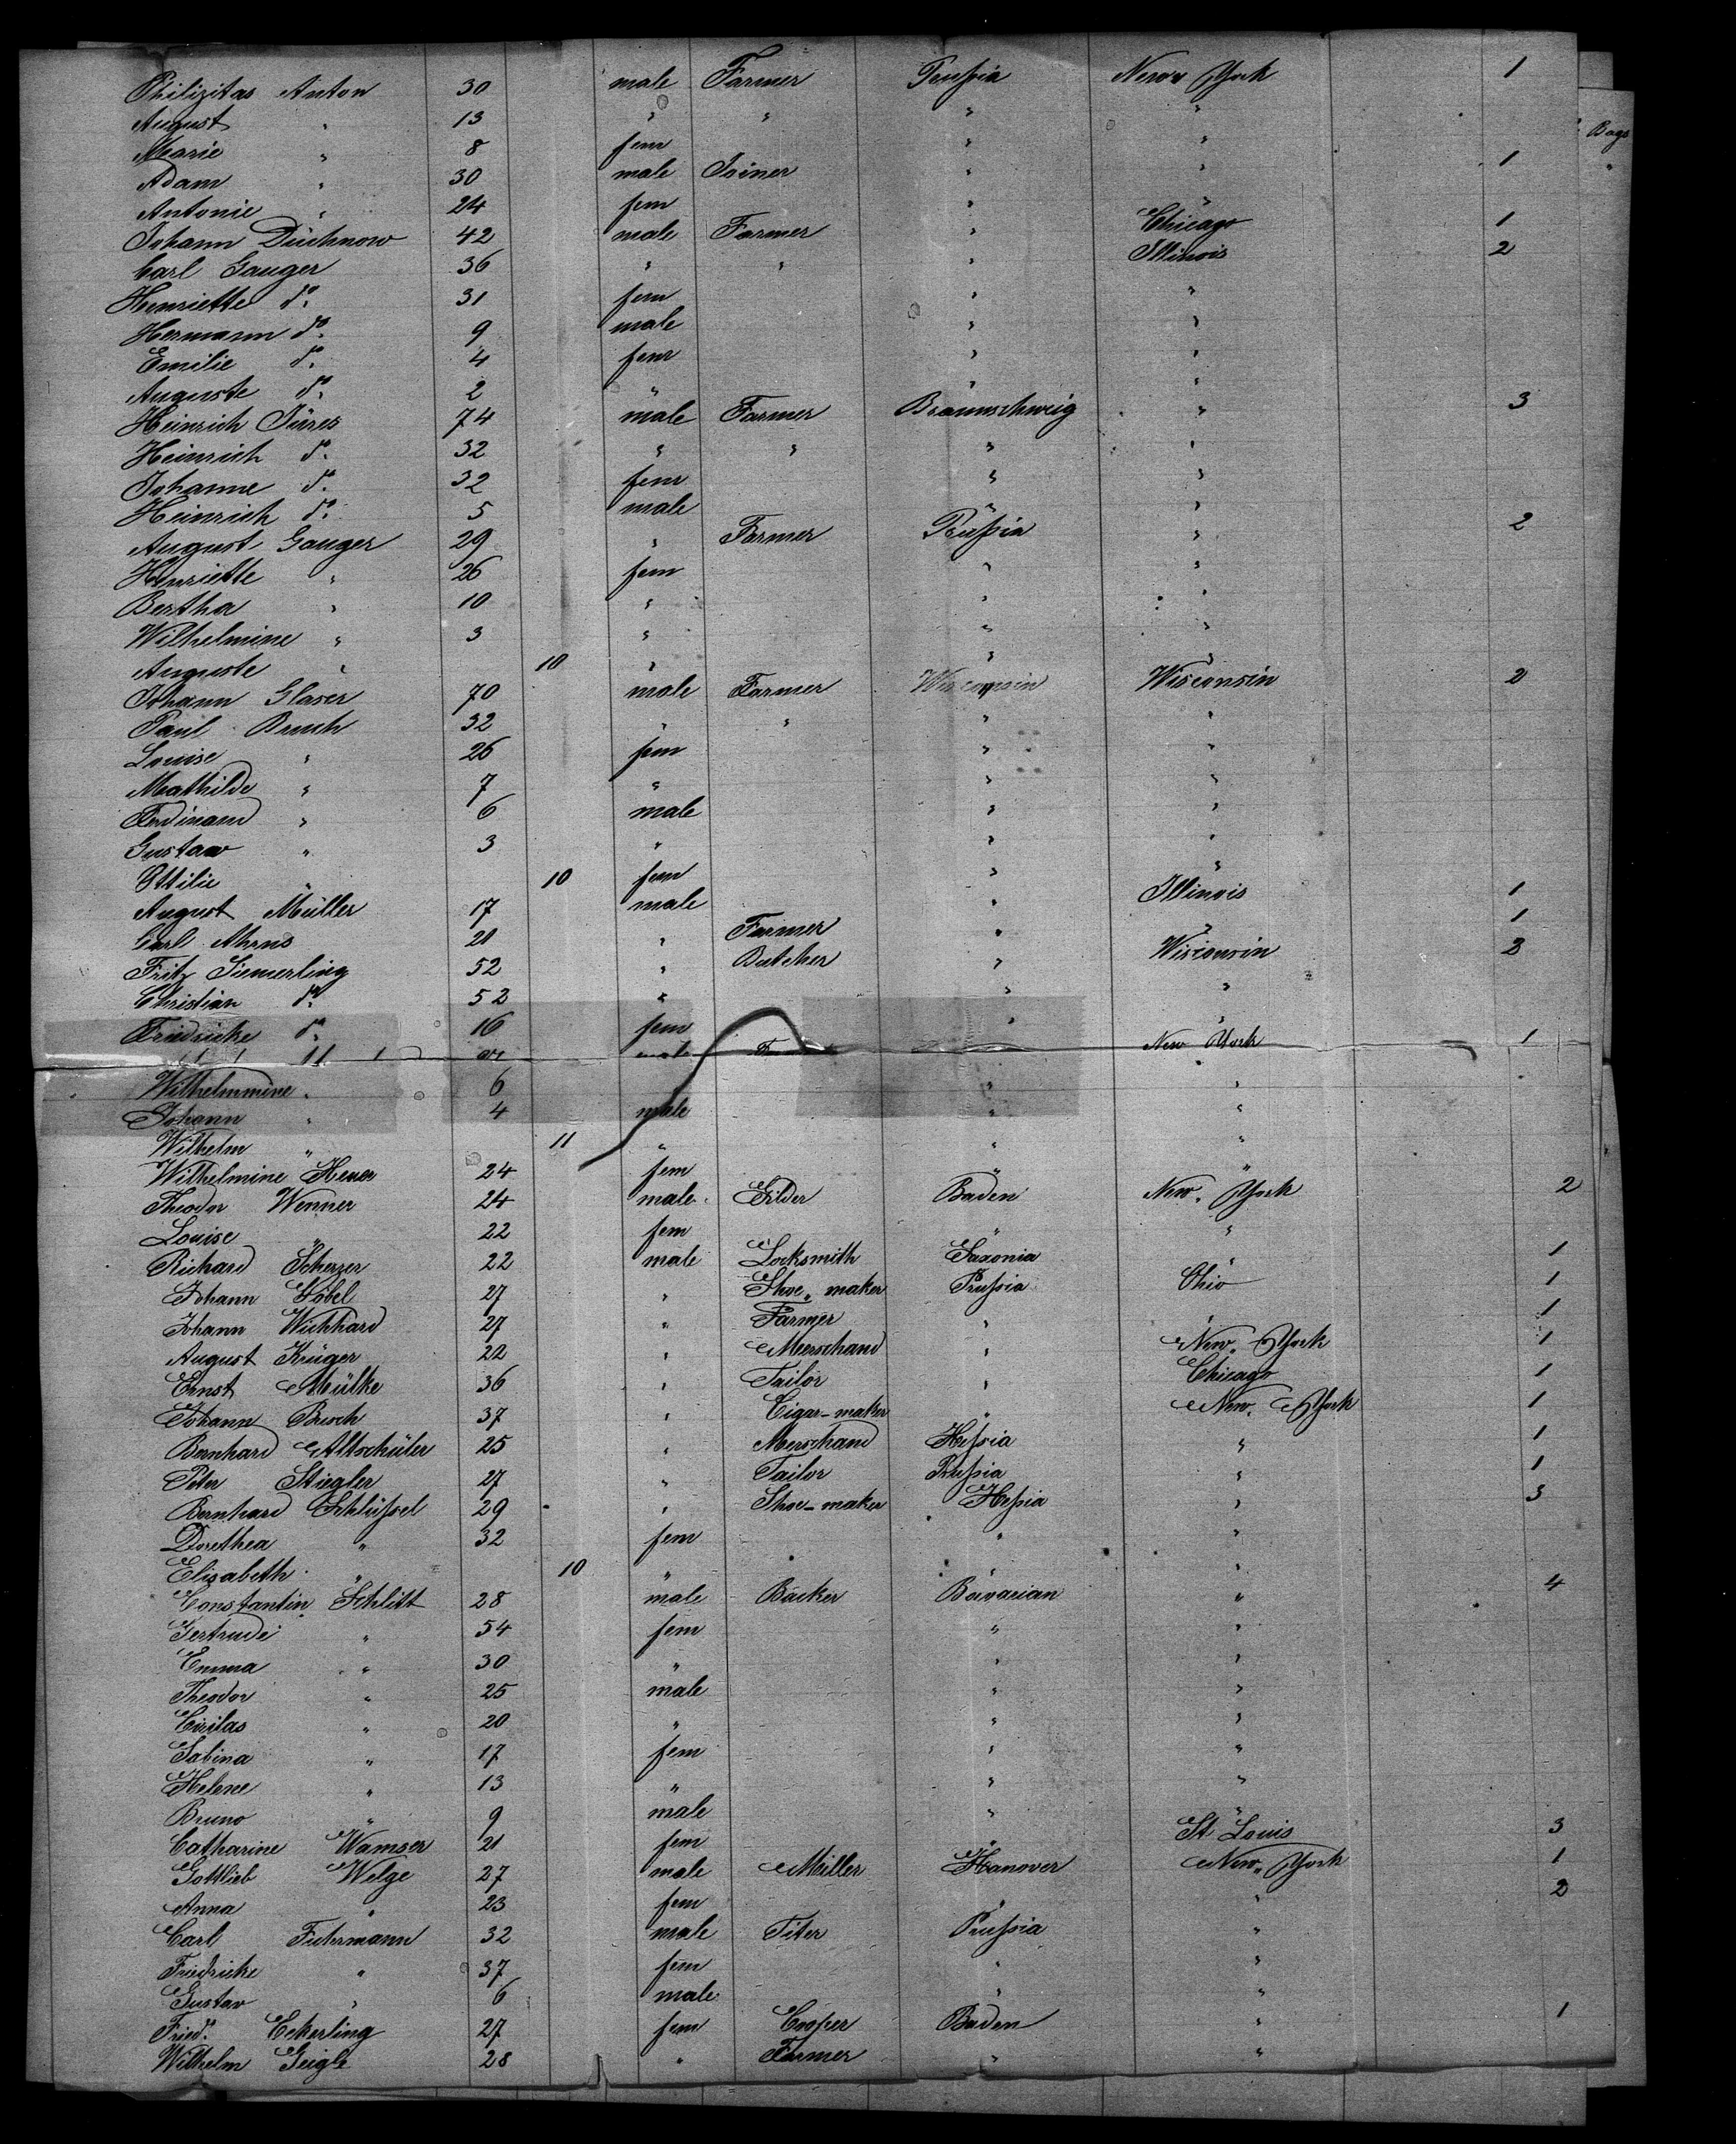 Philizitas Anton 30 male Farmer Prußia New York 1
August " 13 " " " "
Marie " 8 fem " "
Adam " 30 male Joiner " " 1
Antonie " 24 fem " "
Johann Düchnow 42 male Farmer " Chicago 1
Carl Gauger 36 " " " Illinois 2
Henriette do. 31 fem " "
Hermann do. 9 male " "
Emilie do. 4 fem " "
Auguste do. 2 " " "
Heinrich Jüres 74 male Farmer Braunschweig " 3
Heinrich do. 32 " " " "
Johanne do. 32 fem " "
Heinrich do. 5 male " "
August Gauger 29 " Farmer Prußia " 2
Henriette " 26 fem " "
Bertha " 10 " " "
Wilhelmine " 3 " " "
Auguste " 10 " " "
Johann Glaser 70 male Farmer Wisconsin " Wisconsin 2
Paul Brush 32 " " " "
Louise " 26 fem " "
Mathilde " 7 " " "
Ferdinand " 6 male " "
Gustav " 3 " " "
Ottilie " 10 fem " "
August Müller 17 male " Illinois 1
Carl Ahrns 21 " Farmer " " 1
Fritz Siemerling 52 " Butcher " Wisconsin 2
Christian do. 52 " " "
Friedricke do. 16 fem " "
New York 1
Wilhelmmine " 6 " "
Johann " 4 male " "
Wilhelm " 11 " " "
Wilhelmine Heuer 24 fem " "
Theodor Wenner 24 male Gilder Baden New York 2
Louise " 22 fem " "
Richard Scherzer 22 male Locksmith Saxonia " 1
Johann Göbel 27 " Shoe-maker Prußia Ohio 1
Johann Wichhard 27 " Farmer " " 1
August Krüger 22 " Merschand " New York 1
Ernst Mülke 36 " Tailor " Chicago 1
Johann Busch 37 " Cigar-maker " New York 1
Bernhard Altschüler 25 " Merschand Heßia " 1
Peter Stiegler 27 " Tailor Prußia " 1
Bernhard Schlüßel 29 " Shoe-maker Heßia " 3
Dorethea " 32 fem " "
Elisabeth " 10 " " "
Constantin Schlitt 28 male Backer Bavarian " 4
Gertrude " 54 fem " "
Emma " 30 " " "
Theodor " 25 male " "
Cirilas " 20 " " "
Sabina " 17 fem " "
Helene " 13 " " "
Bruno " 9 male " "
Catharine Wamser 21 fem " St Louis 3
Gottlieb Welge 27 male Miller Hanover New York 1
Anna " 23 fem " " 2
Carl Fuhrmann 32 male Titer Prußia "
Friedricke " 37 fem " "
Gustav " 6 male " "
Fried. Eckerling 27 fem Cooper Baden " 1
Wilhelm Geigle 28 " Farmer " "
Bags
"